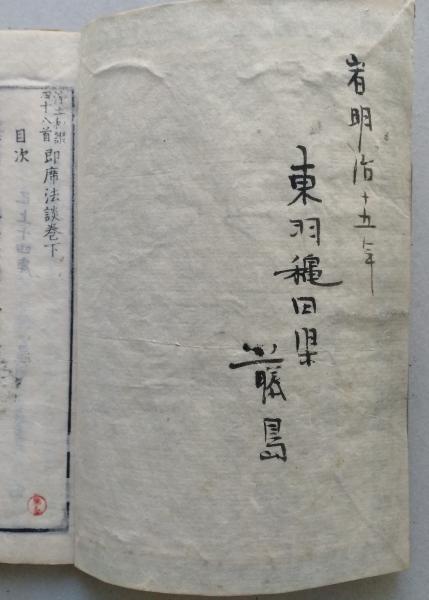 省明治十五年
東羽龝田県
藤島
浄土和讃
四十八首
即席法談巻下
目次